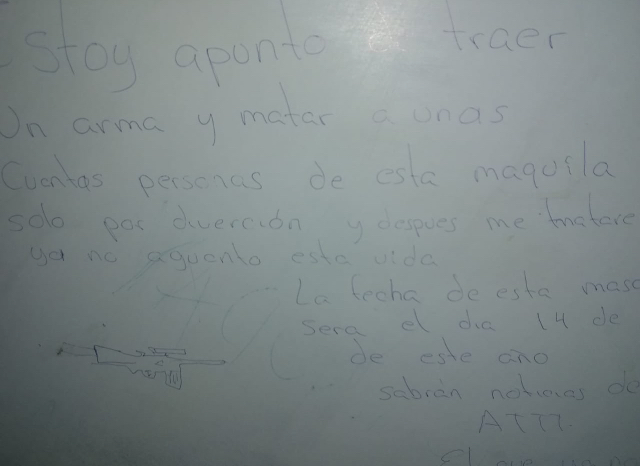 Estoy apunto d traer
Un arma y matar a unas
Cuentas personas de esta maquila
solo por diverción y despues me matare
ya no aguanto esta vida
La fecha de esta masa
sera el dia 14 de
de este año
sabrán noticias de
ATTT.
El que ya no